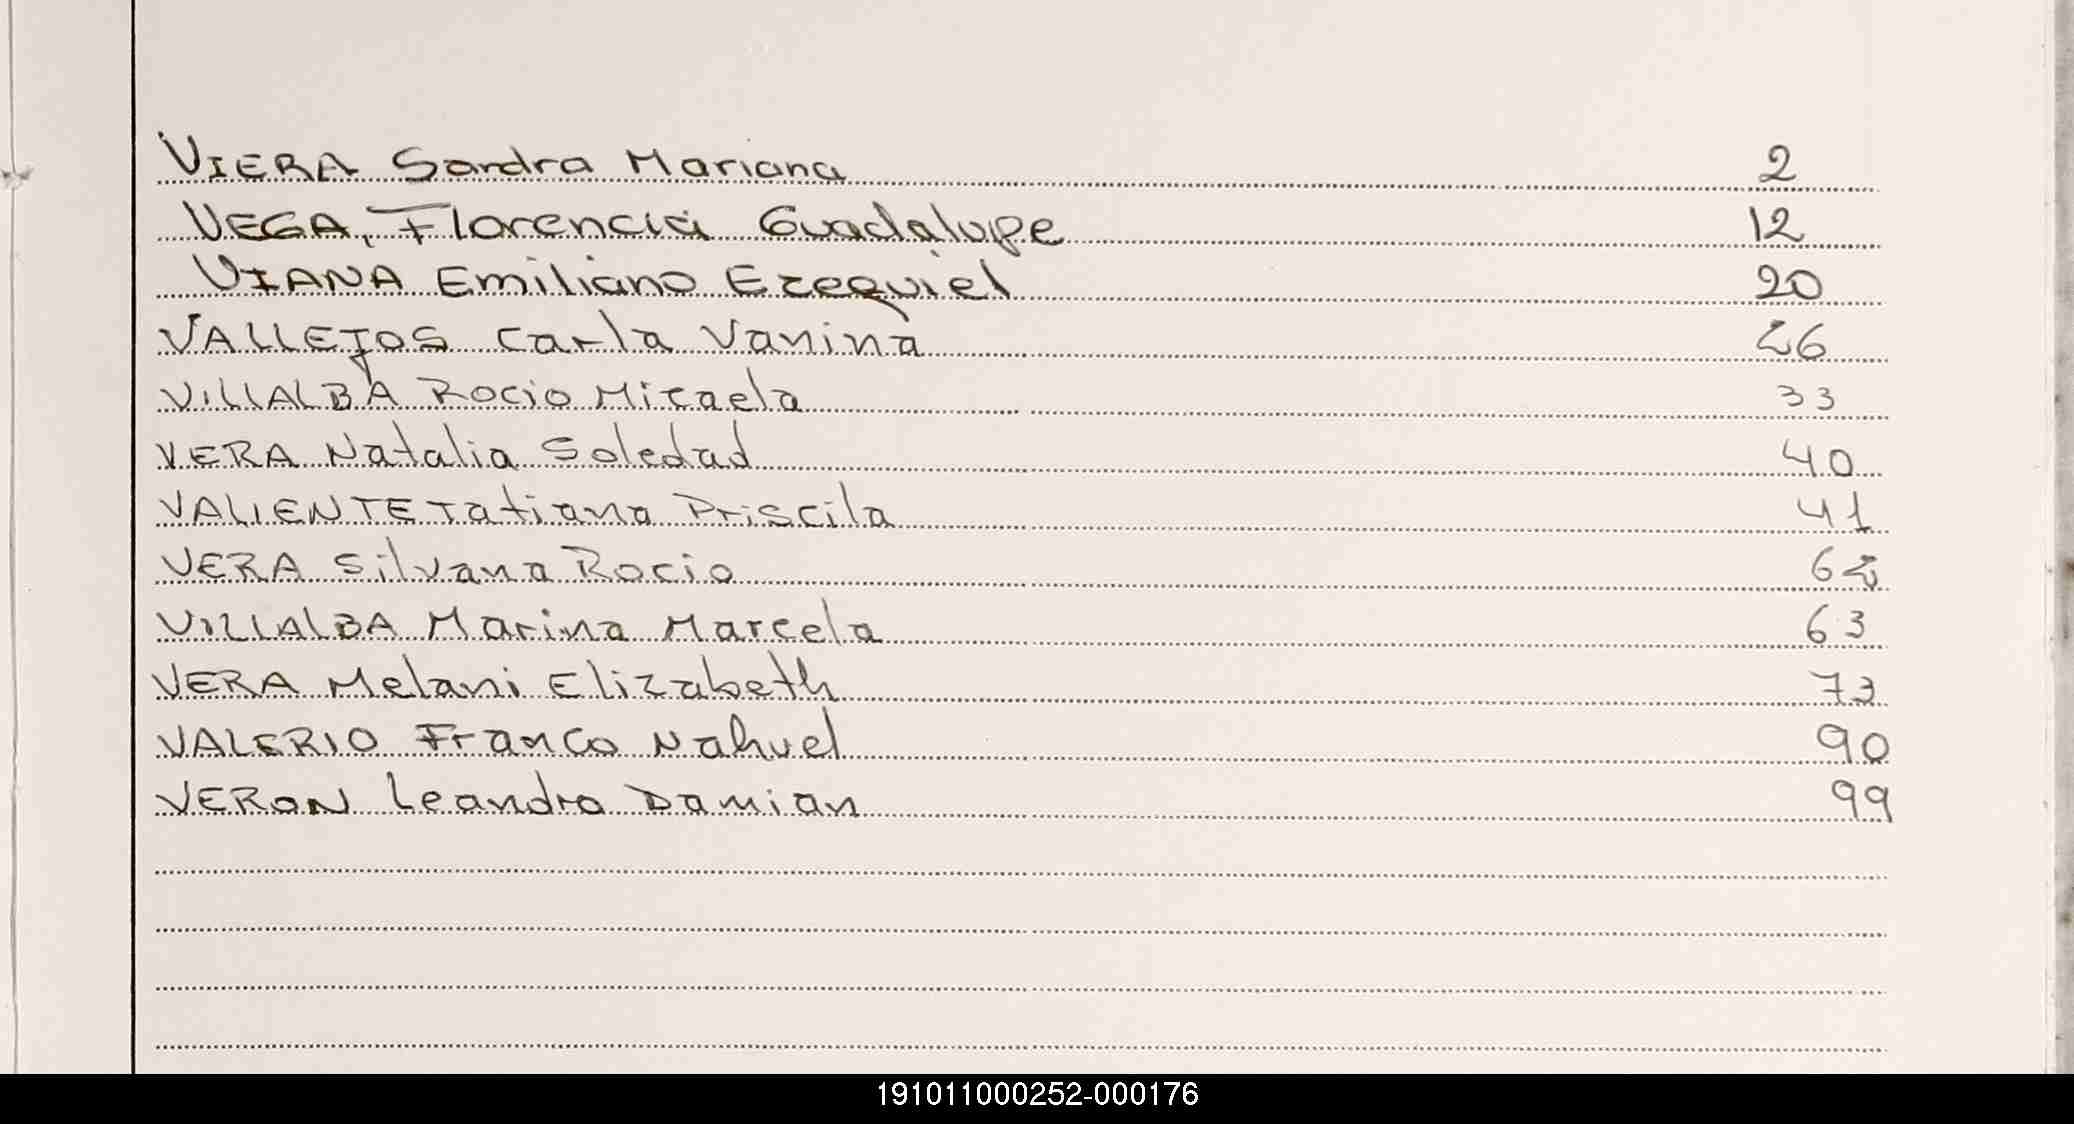 VIERA Sandra Mariana 2
VEGA, Florencia Guadalupe 12
VIANA Emiliano Ezequiel 20
VALLEJOS Carla Vanina 26
VILLALBA Rocio Micaela 33
VERA Natalia Soledad 40
VALIENTE Tatiana Priscila 41
VERA Silvana Rocio 62
VILLALBA Marina Marcela 63
VERA Melani Elizabeth 73
VALERIO Franco Nahuel 90
VERON Leandro Damian 99
191011000252-000176